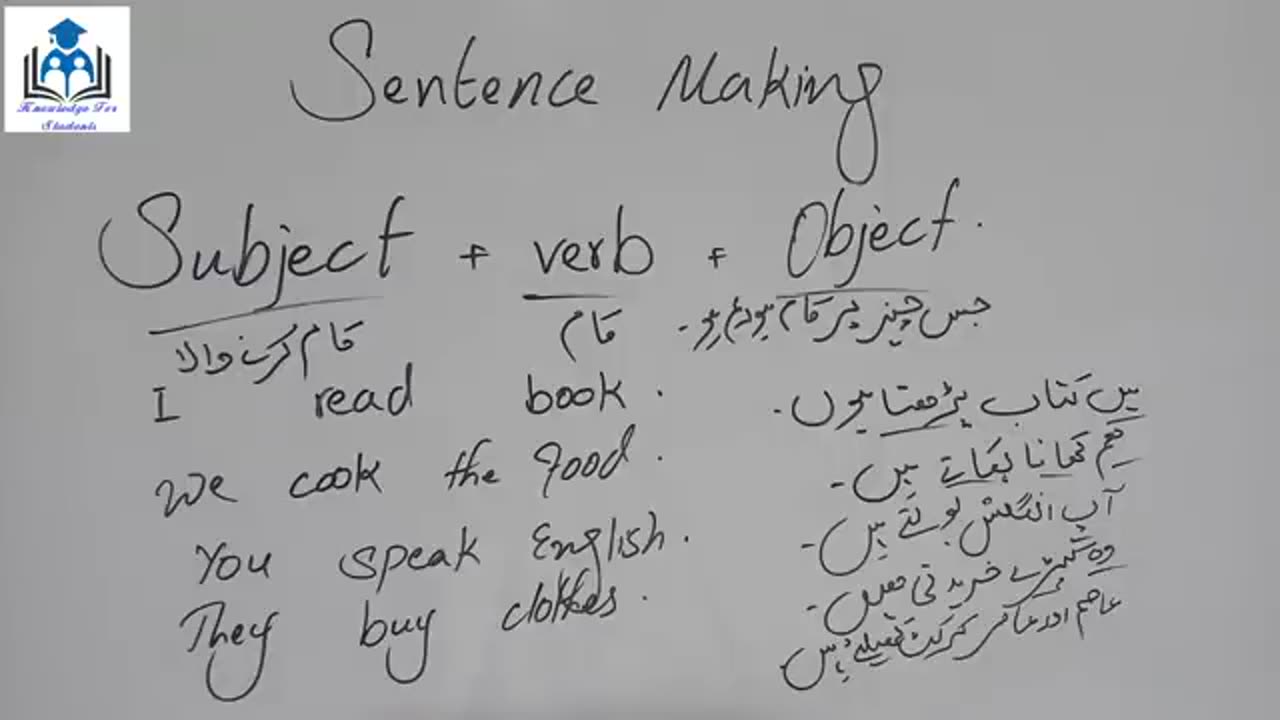 Knowledge For
Students
Sentence Making
Subject + verb + Object.
کام کرنے والا کام جس چیز پر کام ہو رہا ہو۔
I read book. میں کتاب پڑھتا ہوں۔
We cook the food. ہم کھانا پکاتے ہیں۔
You speak English. آپ انگلش بولتے ہیں۔
They buy clothes. وہ کپڑے خریدتی ہیں۔
عاصم اور کرکٹ کھیلتے ہیں